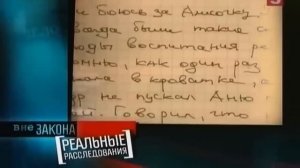 боюсь за Алисочку
были такие
воспитания
как один раз
в кроватке,
не пускал Аню
Говорил, что
вне ЗАКОНА
РЕАЛЬНЫЕ
РАССЛЕДОВАНИЯ